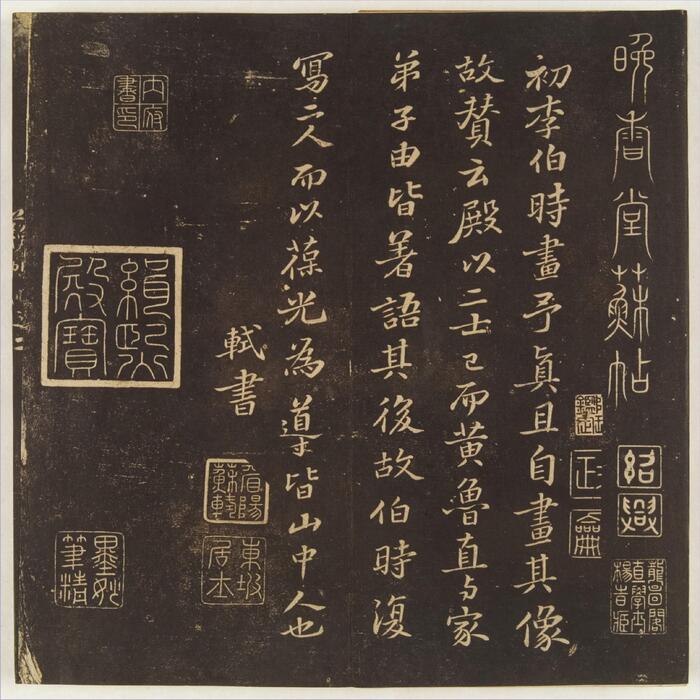 晚香堂蘇帖
紹興
初李伯時畫予真且自畫其像
故贊云殿以二士已而黃魯直與家
弟子由皆著語其後故伯時復
寫二人而以葆光為導皆山中人也
軾書
眉陽蘇軾
東坡居士
內府書印
緝熙殿寶
墨妙筆精